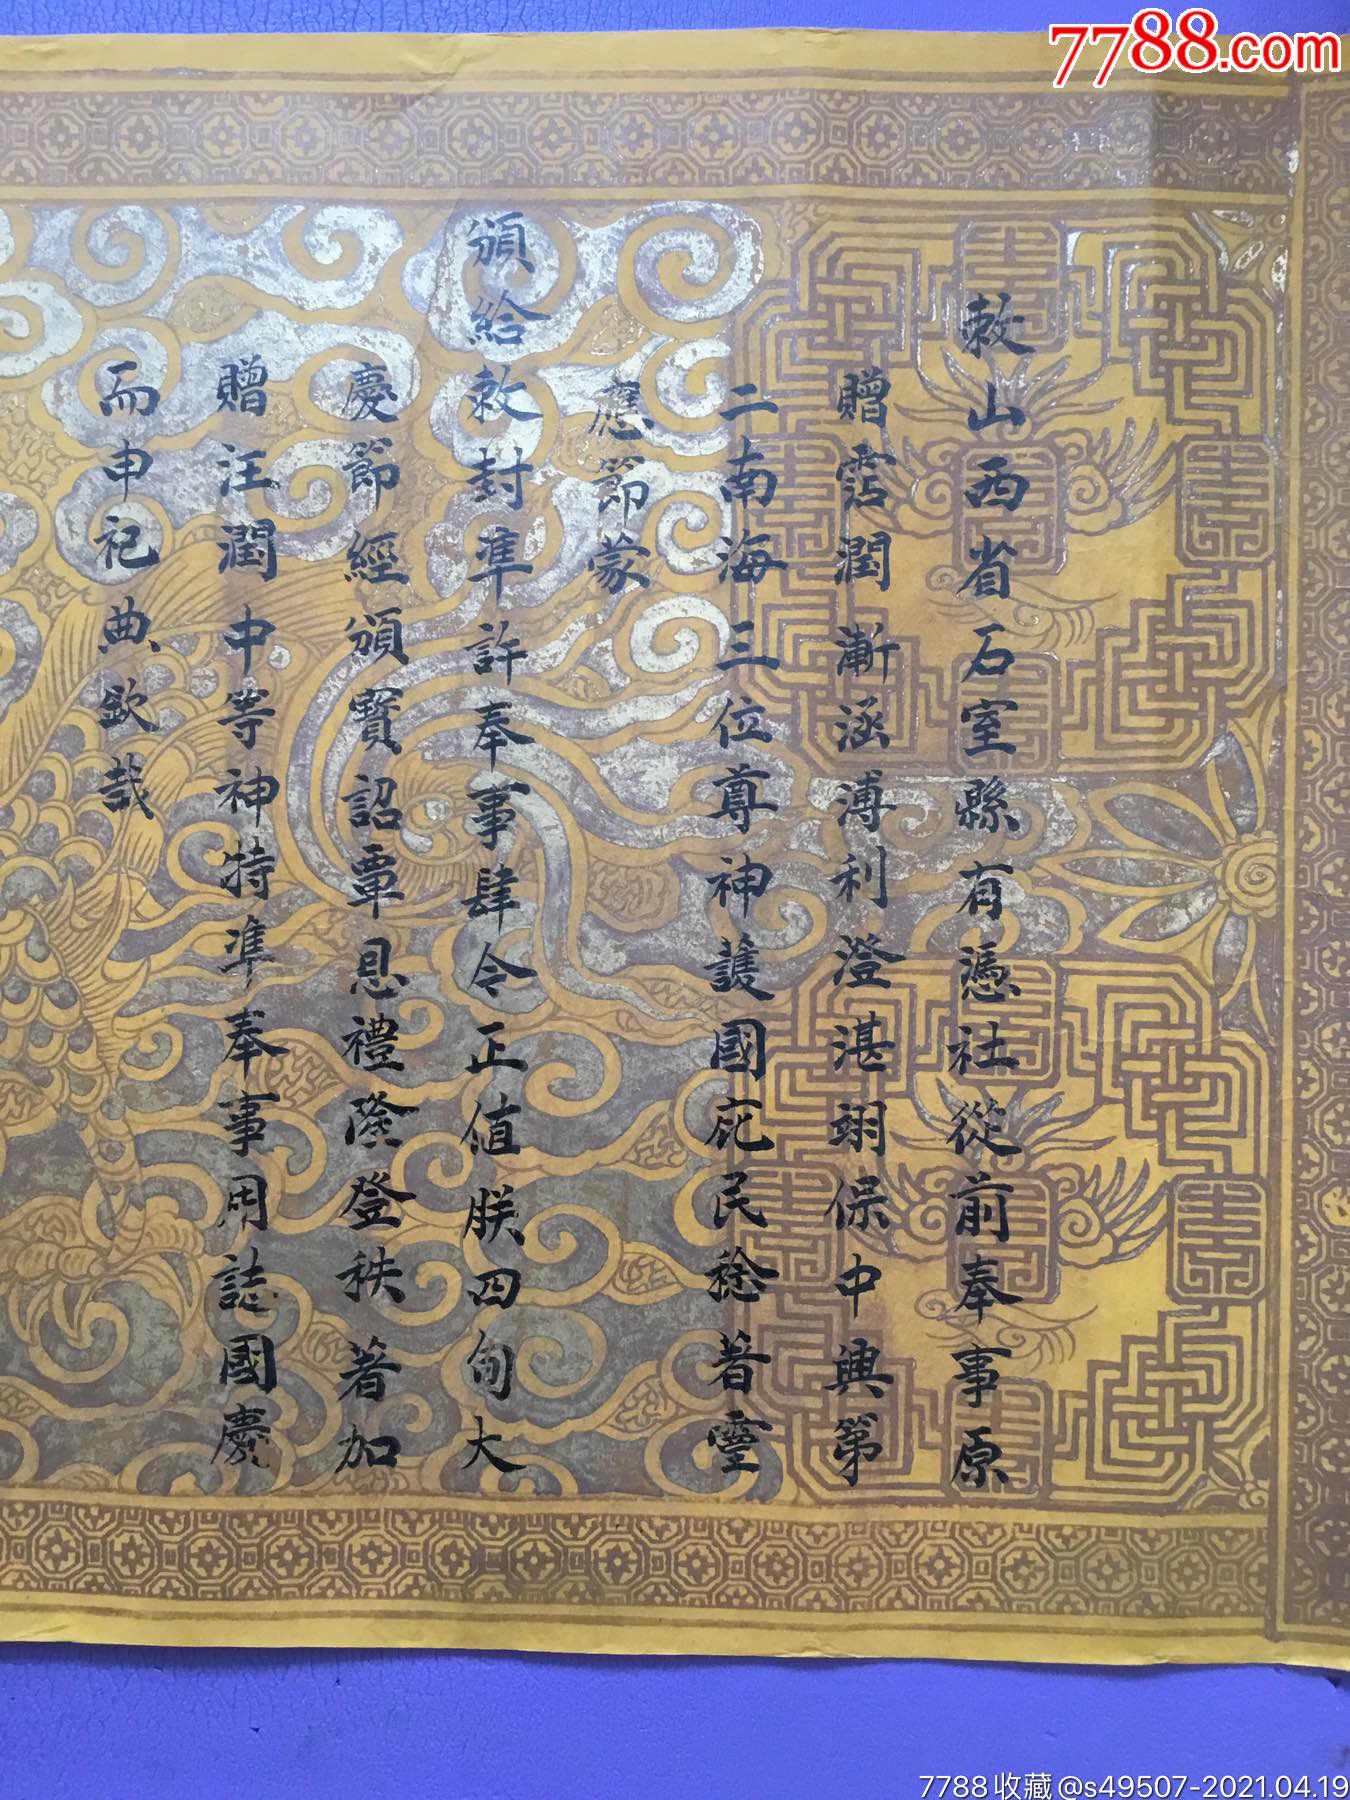 7788.com
敕山西省石室縣有憑社從前奉事原
贈霑潤漸涵溥利澄湛翊保中興第
二南海三位尊神護國庇民稔著靈
應節蒙
頒給敕封準許奉事肆今正值朕四旬大
慶節經頒寶詔覃恩禮隆登秩著加
贈汪潤中等神特準奉事用誌國慶
而申祀典欽哉
7788收藏@s49507-2021.04.19